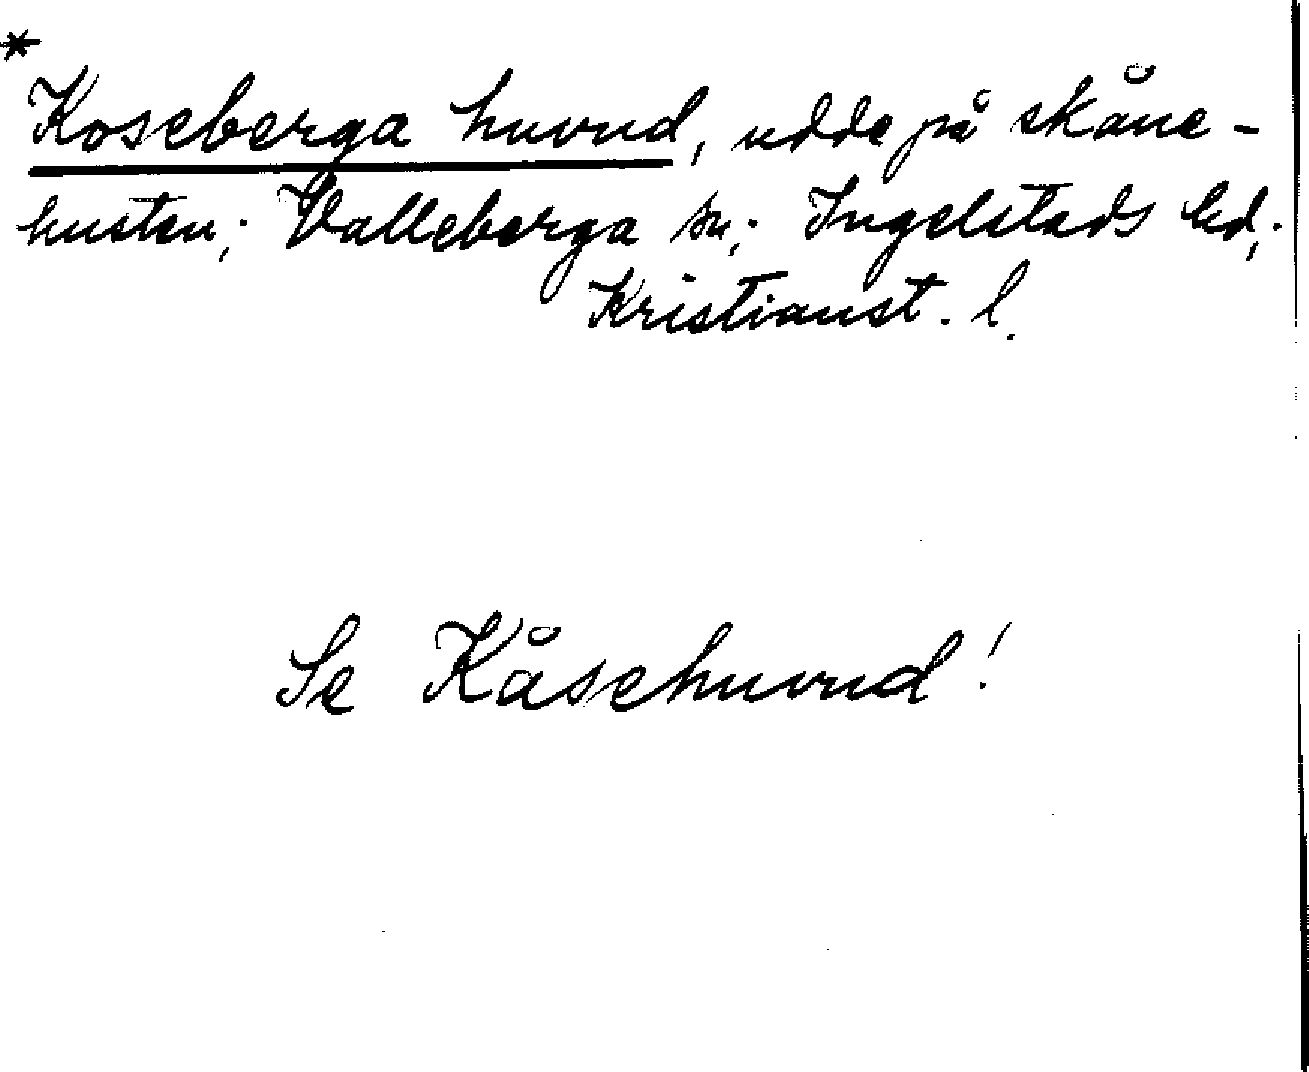 *
Koseberga huvud, udde på skåne-
kusten; Valleberga sn; Ingelstads hd;
Kristianst. l.
Se Kåsehuvud!